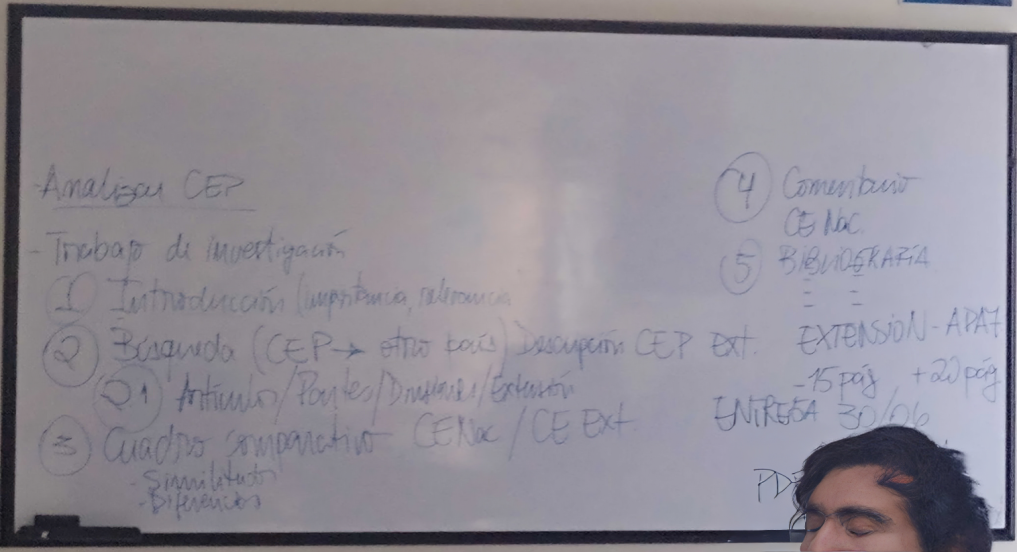 - Analizar CEP
- Trabajo de investigación
1 Introducción (importancia, relevancia
2 Búsqueda (CEP → otro país) Descripción CEP Ext.
2.1 Artículos/Partes/Divisiones/Extensión
3 Cuadro comparativo CENac / CE Ext.
- Similitud
- Diferencias
4 Comentario
CE Nac.
5 BIBLIOGRAFÍA
EXTENSIÓN - APA7
-15 pág +20 pág
ENTREGA 30/06